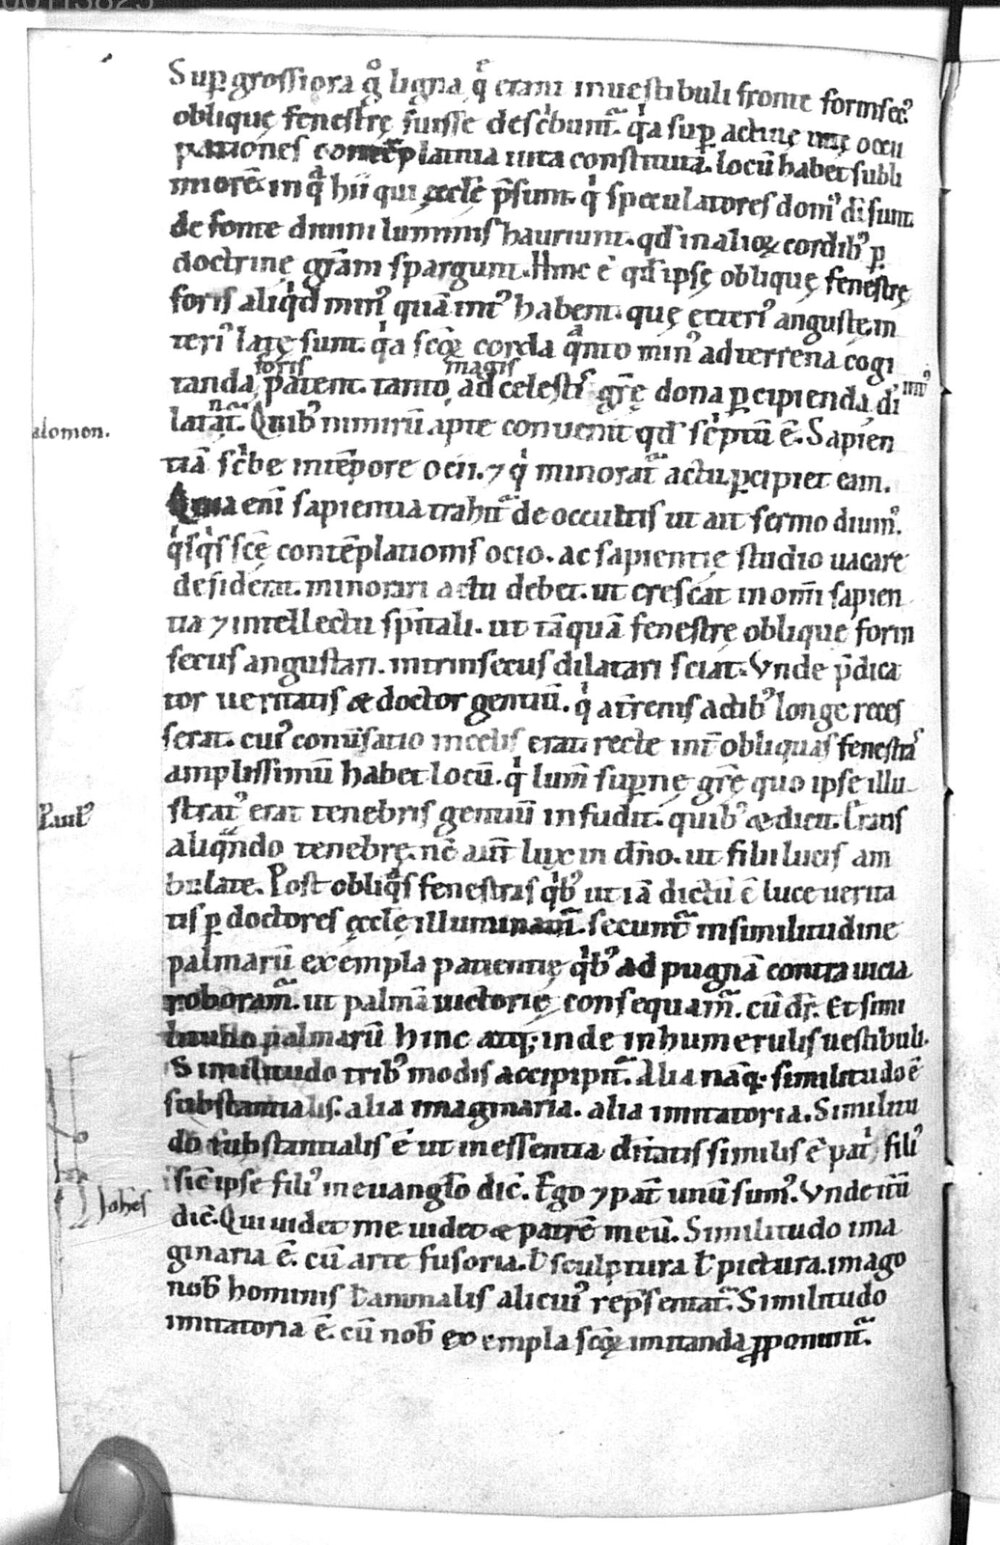 00113825
Sup grossiora gͦ ligna qͥ erant in uestibuli fronte forinsec⁹
oblique̜ fenestre̜ fuisse describunt᷑. qͥa sup actiue̜ uite̜ occu
pationes contēplatiua uita constituta. locū habet subli
miorē. in qͣ hii qui e̜ccl̄e p̄sunt. qͥ speculatores dom⁹ dī sunt.
de fonte diuini luminis hauriunt. qd̓ in alioꝝ cordib⁹ ꝑ
doctrine̜ grām spargunt. Hinc ē qd̓ ipse̜ oblique̜ fenestre̜
foris aliqͥd min⁹ quā int⁹ habent. que̜ exteri⁹ anguste̜. in
teri⁹ late̜ sunt. qͥa scōꝝ corda qͣnto min⁹ ad terrena cogi
tanda foris patent. tanto magis ad celestis gr̄e̜ dona ꝑcipienda di int⁹
latant᷑. Quib⁹ nimirū apte conuenit qd̓ sc̄ptū ē. Sapien
alomon.
tiā scͥbe in tēpore ocii. ⁊ qͥ minorat᷑ actu. ꝑcipiet eam.
Quia eni sapientia trahit᷑ de occultis ut ait sermo diuin⁹.
qͥsqͥs scē contēplationis ocio. ac sapientie̜ studio uacare
desiderat. minorari actu debet. ut crescat in omī sapien
tia ⁊ intellectu spīritali. ut tāquā fenestre̜ oblique̜ forin
secus angustari. intrinsecus dilatari sciat. Vnde p̄dica
tor ueritatis & doctor gentiū. qͥ a tr̄enis actib⁹ longe reces
serat. cui⁹ conu̓satio in celis erat. recte int̓ obliquas fenestras
amplissimū habet locū. qͥ lum̄ supne̜ gr̄e̜ quo ipse illu
strat⁹ erat tenebris gentiū infudit. quib⁹ & dicit. Eratis
Paul⁹
aliqͣndo tenebre̜. nc̄ aut̄ lux in dn̄o. ut filii lucis am
bulate. Post obliqͣs fenestras qͥb⁹ ut iā dictū ē luce uerita
tis ꝑ doctores e̜ccl̄e̜ illuminant᷑. secunt᷑ in similitudine
palmarū exempla patientie̜ qͥb⁹ ad pugnā contra uicia
roborant᷑. ut palmā uictorie̜ consequam᷑. cū dr̄. Et simi
litudo palmarū hinc atq; inde in humerulis uestibuli.
Similitudo trib⁹ modis accipipit᷑. Alia naq; similitudo ē
substantialis. alia imaginaria. alia imitatoria. Similitu
do substantialis ē ut in essentia diuītatis similis ē patͥ fili⁹
sic̄ ipse fili⁹ in euangl̄io dic̄. Ego ⁊ pat̄ unū sum⁹. Vnde itū
Johes
dic̄. Qui uidet me uidet & patrē meū. Similitudo ima
ginaria ē. cū arte fusoria. ł sculptura ł pictura. imago
nob̄ hominis ł animalis alicui⁹ rep̄sentat᷑. Similitudo
imitatoria ē. cū nob̄ exempla scōꝝ imitanda ꝓponunt᷑.